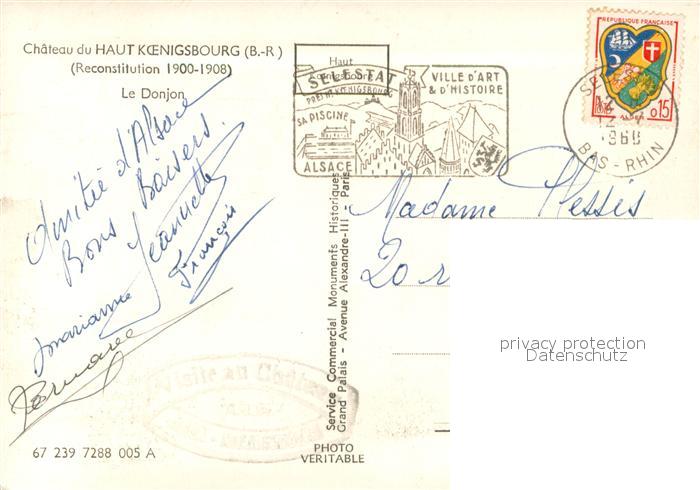 Château du HAUT KŒNIGSBOURG (B.-R)
(Reconstitution 1900-1908)
Le Donjon
Amitié d'Alsace
Bons Baisers.
Jeannette
François
marianne
67 239 7288 005 A
Service Commercial Monuments Historiques
Grand Palais - Avenue Alexandre-III - Paris
PHOTO
VERITABLE
Haut
SELESTAT
PRÈS HT KŒNIGSBOURG
SA PISCINE
ALSACE
VILLE D'ART
& D'HISTOIRE
REPUBLIQUE FRANÇAISE
ALGER
0,15
BAS-RHIN
Madame Hessis
20 r
privacy protection
Datenschutz
Visite au